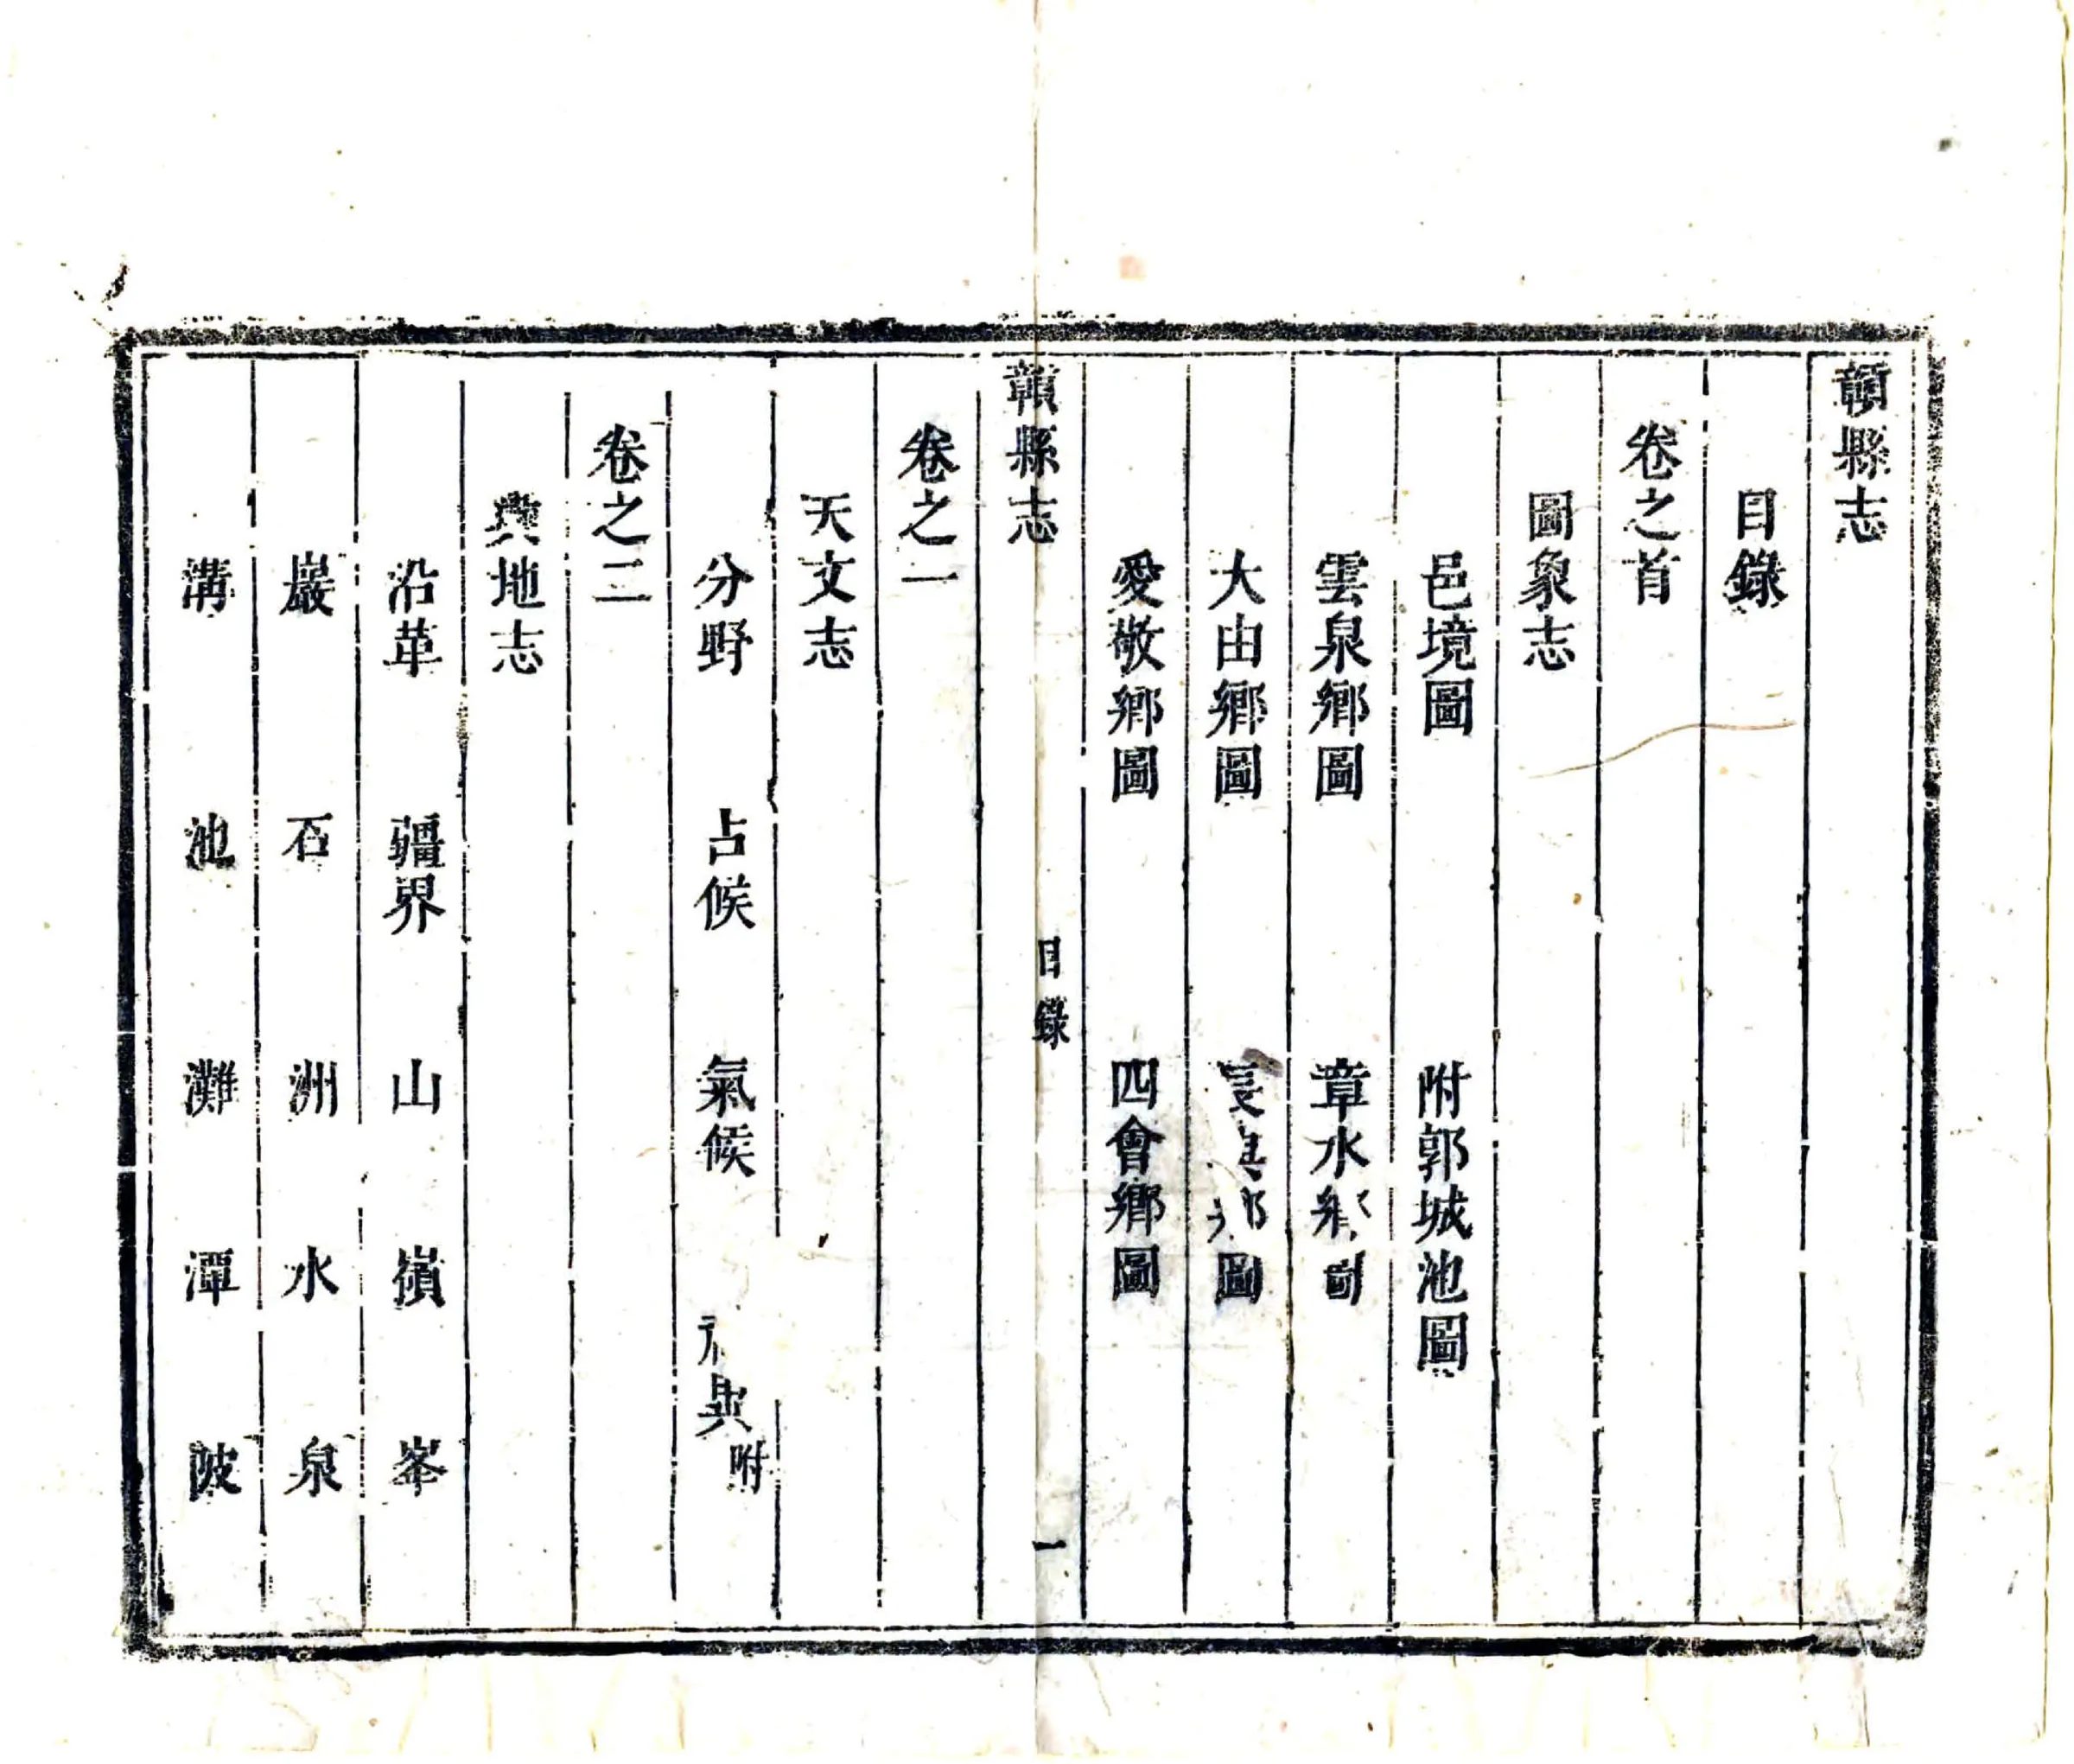 贑縣志
目錄
卷之首
圖象志
邑境圖 附郭城池圖
雲泉鄉圖 章水鄉圖
大由鄉圖 長興鄉圖
愛敬鄉圖 四會鄉圖
贑縣志 目錄 一
卷之一
天文志
分野 占候 氣候 祥異附
卷之二
輿地志
沿革 疆界 山 嶺 峯
巖 石 洲 水 泉
溝 池 灘 潭 陂